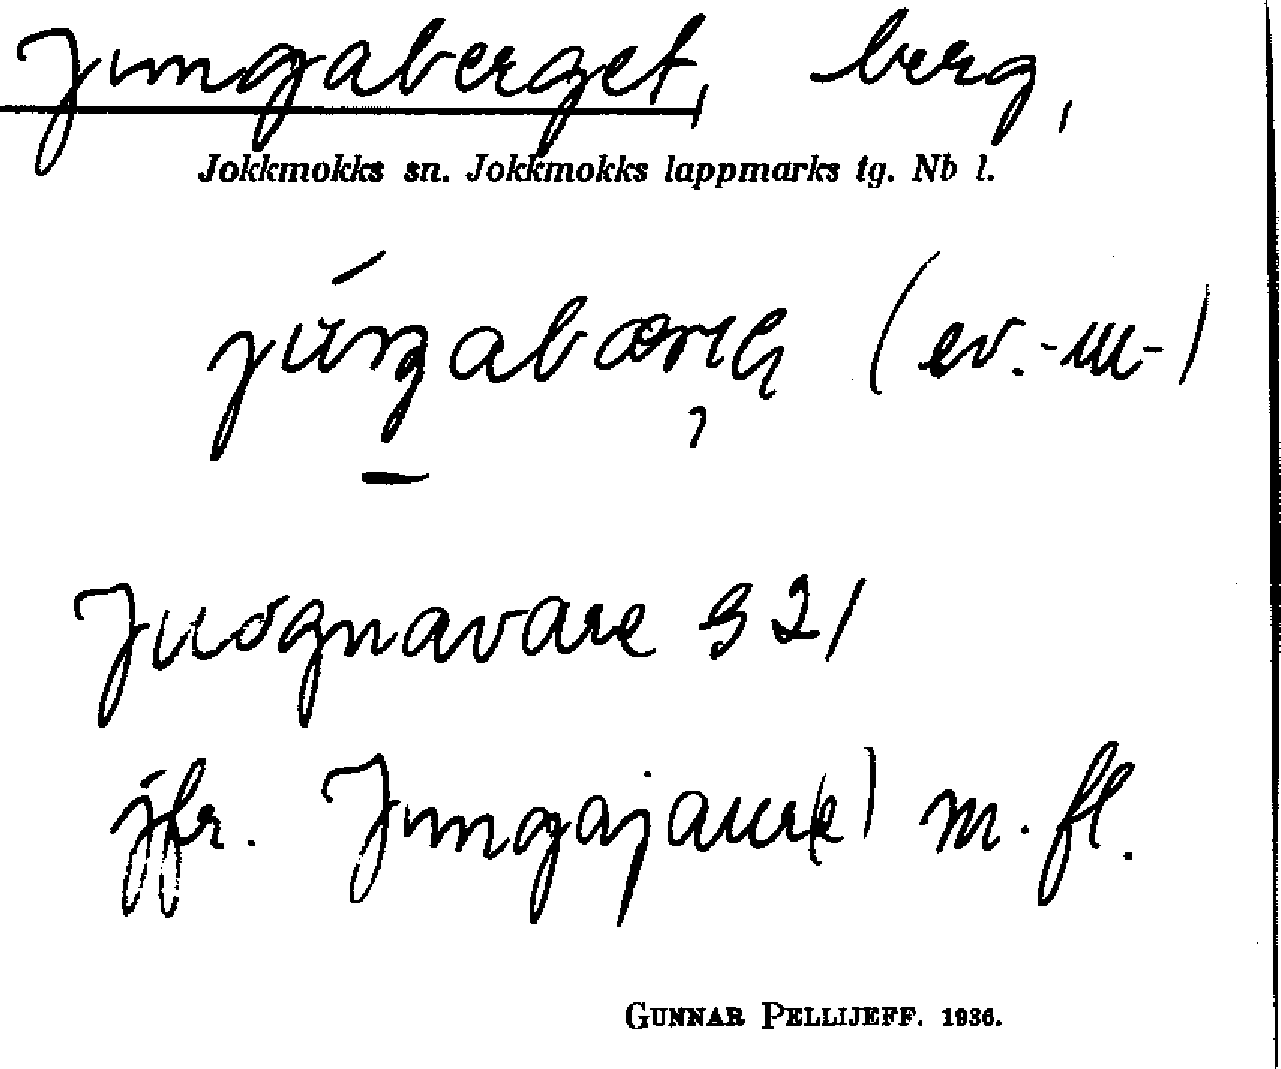 Jungaberget, berg,
Jokkmokks sn. Jokkmokks lappmarks tg. Nb l.
(ev. -ɯ-)
Juognavare 321
jfr. Jungajaur(e) m. fl.
GUNNAR PELLIJEFF. 1936.